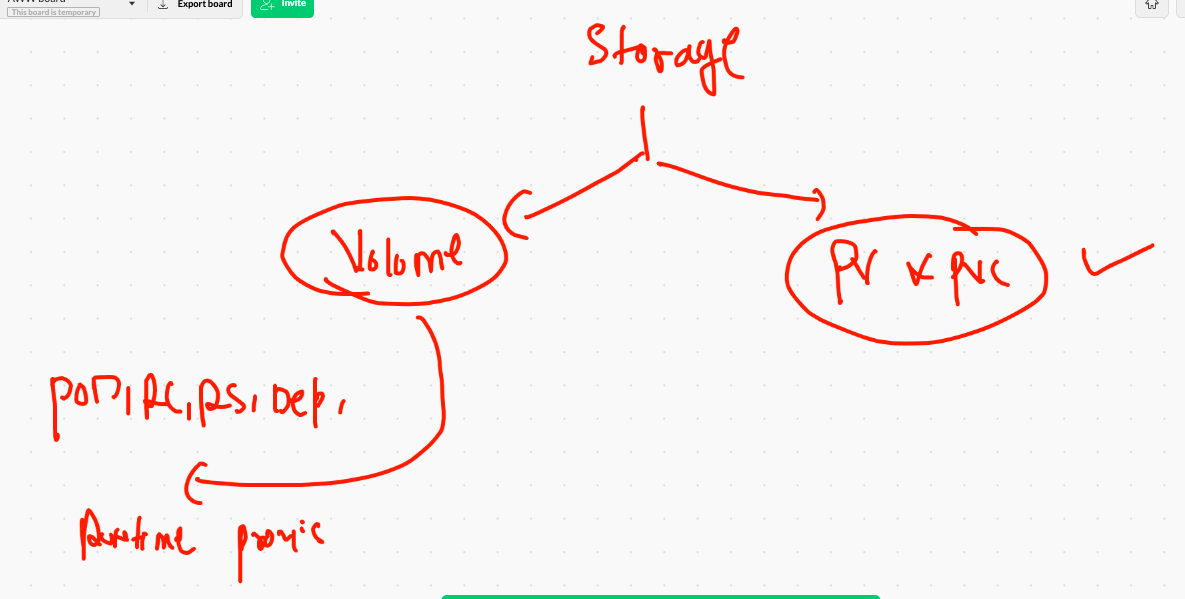 This board is temporary
Export board
Invite
Storage
Volume
PV & PVC
POD, RC, RS, Dep,
Runtime